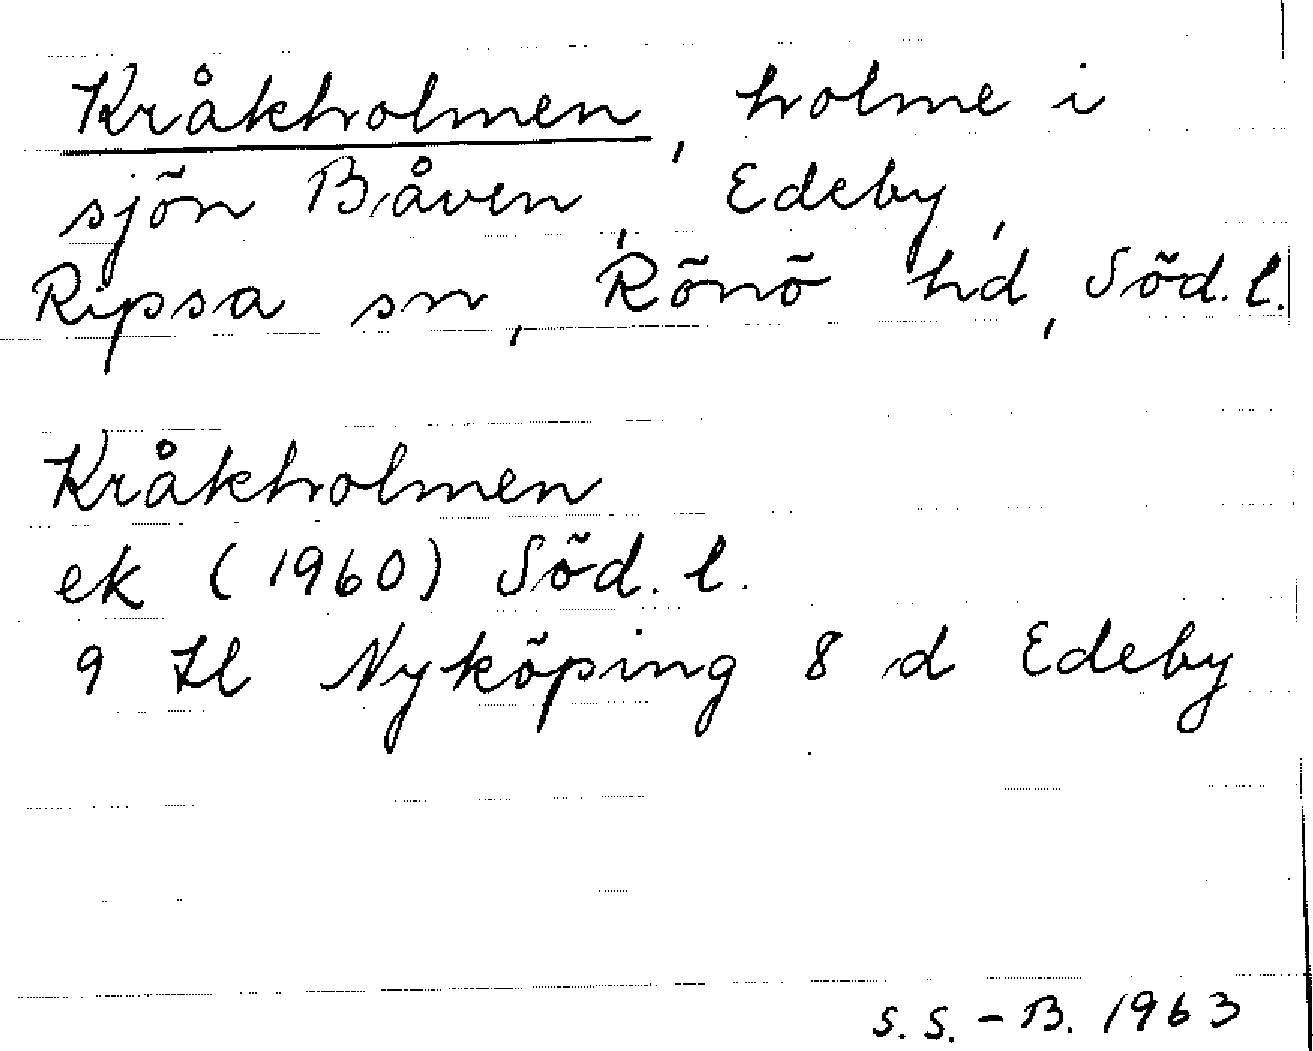 Kråkholmen, holme i
sjön Båven, Edeby,
Ripsa sn, Rönö hd, Söd. l.
Kråkholmen
ek (1960) Söd. l.
9 Nyköping 8 d Edeby
S. S. - B. 1963